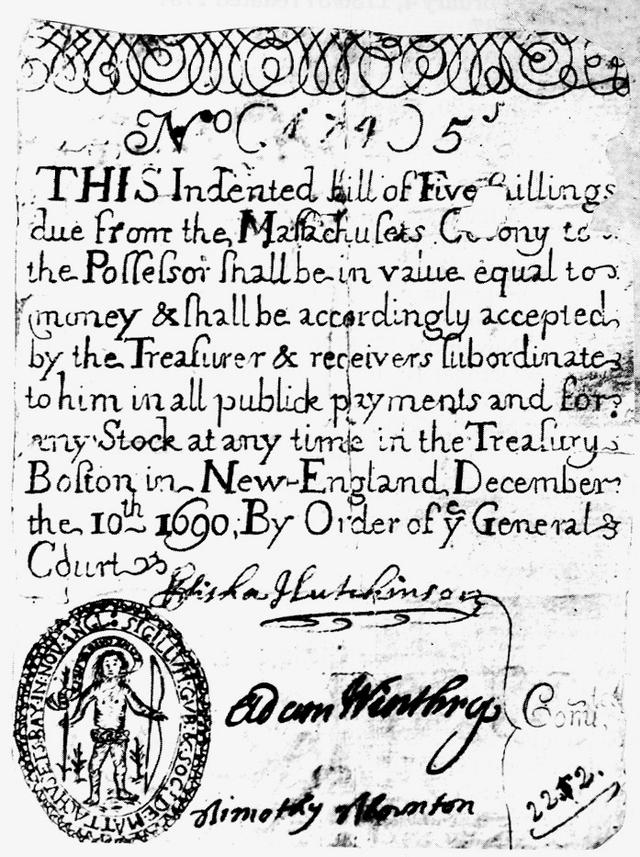 No (4741) 5s
THIS Indented Bill of Five Shillings
due from the Maſſachuſets Colony to
the Poſſeſſor ſhall be in value equal to
money & ſhall be accordingly accepted
by the Treaſurer & receivers ſubordinate
to him in all publick payments and for
any Stock at any time in the Treaſury
Boſton in New-England, December
the 10th 1690; By Order of ye General
Court
Elisha Hutchinson
Adam Winthrop
Comtee
Timothy Thornton
SIGILLVM: GVB: & SOC: DE MATTACHVSETS BAY: IN: NOV: ANGL: